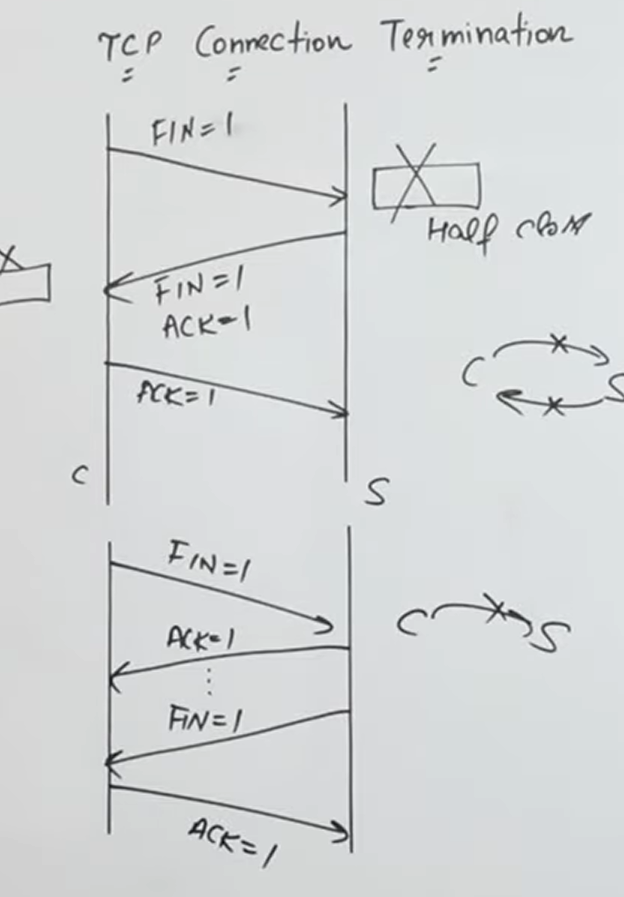 TCP Connection Termination
FIN=1
Half close
FIN=1
ACK=1
C S
ACK=1
C
S
FIN=1
ACK=1
C S
FIN=1
ACK=1